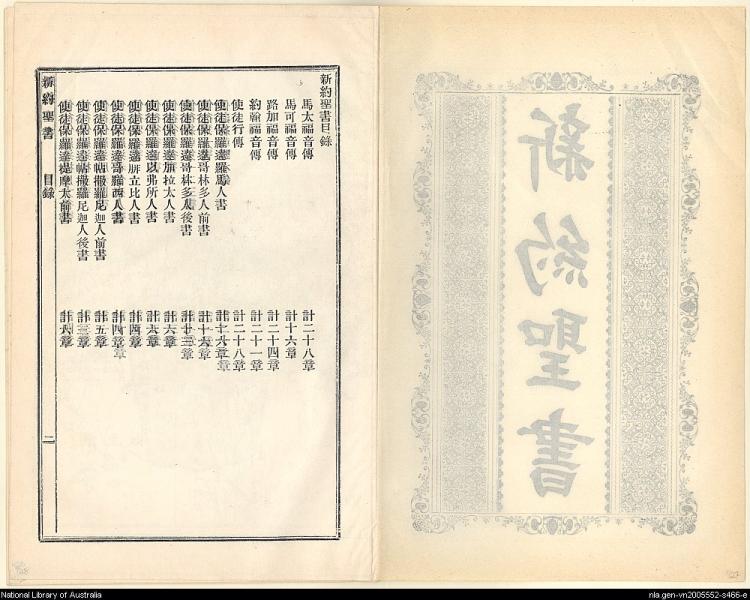 新約聖書
新約聖書目錄
馬太福音傳 計二十八章
馬可福音傳 計十六章
路加福音傳 計二十四章
約翰福音傳 計二十一章
使徒行傳 計二十八章
使徒保羅達羅馬人書 計十六章
使徒保羅達哥林多人前書 計十六章
使徒保羅達哥林多人後書 計十三章
使徒保羅達拉太人書 計六章
使徒保羅達以弗所人書 計六章
使徒保羅達腓立比人書 計四章
使徒保羅達哥羅西人書 計四章
使徒保羅達帖撒羅尼迦人前書 計五章
使徒保羅達帖撒羅尼迦人後書 計三章
使徒保羅達提摩太前書 計六章
新約聖書 目錄 一
National Library of Australia
nla.gen-vn2005552-s466-e